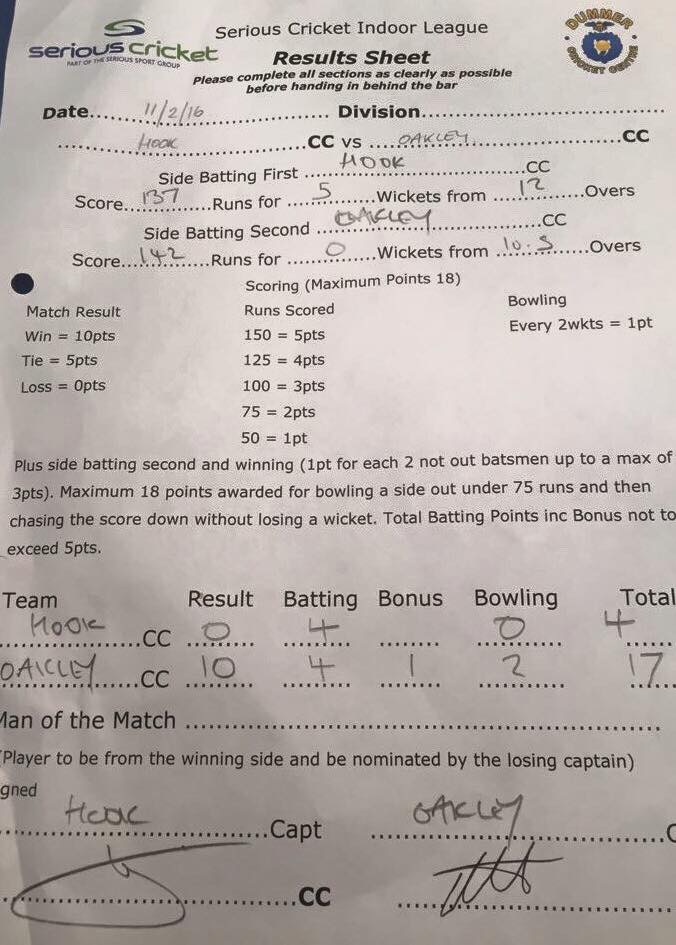 Serious Cricket Indoor League
serious cricket
PART OF THE SERIOUS SPORT GROUP
DUMMER CRICKET CENTRE
Results Sheet
Please complete all sections as clearly as possible
before handing in behind the bar
Date.....11/2/16..................... Division....................................
........HOOK....................CC vs ....OAKLEY.......................CC
Side Batting First ......HOOK......................CC
Score...137......Runs for ....5.......Wickets from ....12.......Overs
Side Batting Second ...OAKLEY..................CC
Score...142......Runs for .....0.......Wickets from .10.5........Overs
Scoring (Maximum Points 18)
Match Result Runs Scored Bowling
Win = 10pts 150 = 5pts Every 2wkts = 1pt
Tie = 5pts 125 = 4pts
Loss = 0pts 100 = 3pts
75 = 2pts
50 = 1pt
Plus side batting second and winning (1pt for each 2 not out batsmen up to a max of
3pts). Maximum 18 points awarded for bowling a side out under 75 runs and then
chasing the score down without losing a wicket. Total Batting Points inc Bonus not to
exceed 5pts.
Team Result Batting Bonus Bowling Total
....HOOK..........CC ...0...... ....4..... ........ ....0...... 4......
OAKLEY........CC ...10..... ....4..... ...1.... ....2...... 17....
Man of the Match .......................................................
(Player to be from the winning side and be nominated by the losing captain)
gned
.......HOOK..................Capt .....OAKLEY....................C
................................CC ................................